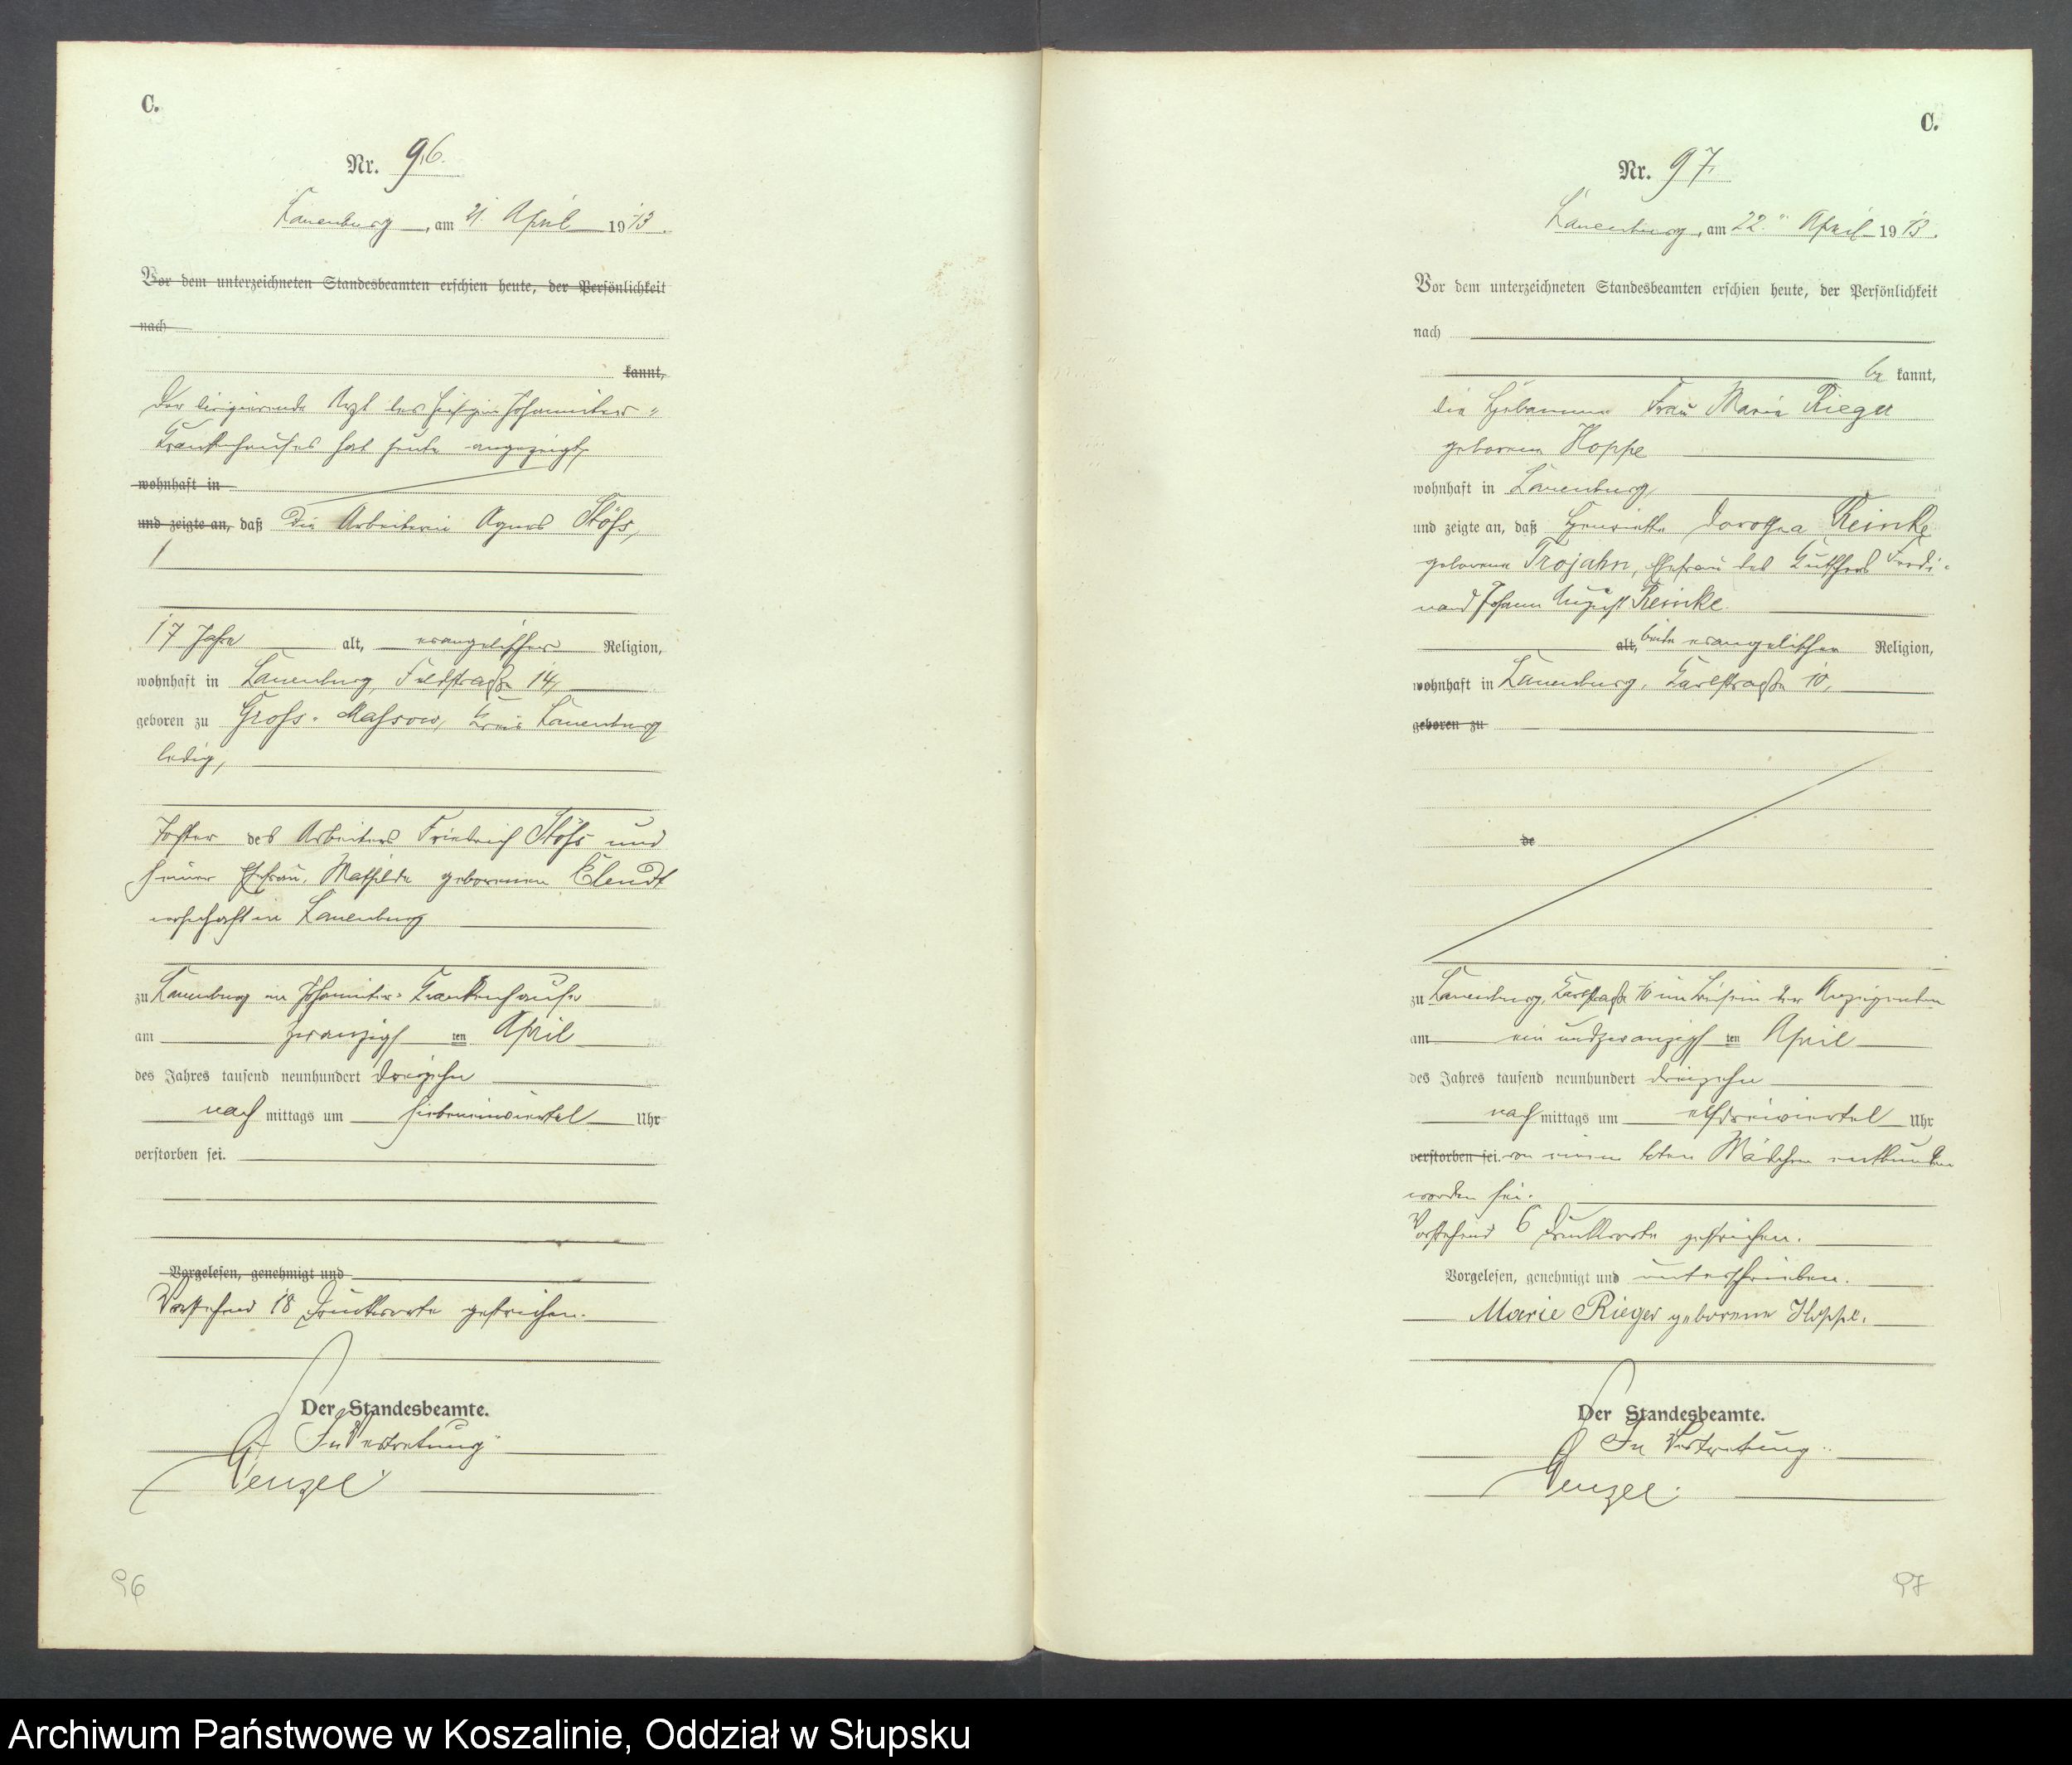 C.
Nr. 96.
Lauenburg, am 21. April 1913.
Vor dem unterzeichneten Standesbeamten erschien heute, der Persönlichkeit
nach
kannt,
Der dirigierende Arzt des hiesigen Johanniter-
Krankenhauses hat heute angezeigt,
wohnhaft in
und zeigte an, daß die Arbeiterin Agnes Stöhs,
17 Jahre alt, evangelischer Religion,
wohnhaft in Lauenburg, Feldstraße 14,
geboren zu Groß-Massow, Kreis Lauenburg
ledig,
Tochter des Arbeiters Friedrich Stöhs und
seiner Ehefrau, Mathilde geborenen Elendt
wohnhaft in Lauenburg
zu Lauenburg im Johanniter-Krankenhause
am zwanzigsten April
des Jahres tausend neunhundert dreizehn
nachmittags um siebeneinviertel Uhr
verstorben sei.
Vorgelesen, genehmigt und
Vorstehend 18 Druckworte gestrichen.
Der Standesbeamte.
In Vertretung
Wenzel.
96
C.
Nr. 97.
Lauenburg, am 22. April 1913.
Vor dem unterzeichneten Standesbeamten erschien heute, der Persönlichkeit
nach
bekannt,
die Hebamme Frau Marie Rieger
geborene Hoppe
wohnhaft in Lauenburg
und zeigte an, daß Henriette Dorothea Reinke
geborene Trojahn, Ehefrau des Kutschers Ferdi-
nand Johann August Reinke
alt, beide evangelischer Religion,
wohnhaft in Lauenburg, Karlstraße 10,
geboren zu
de
zu Lauenburg, Karlstraße 10 im Beisein der Anzeigenden
am einundzwanzigsten April
des Jahres tausend neunhundert dreizehn
nachmittags um elfdreiviertel Uhr
verstorben sei. von einem toten Mädchen entbunden
worden sei.
Vorstehend 6 Druckworte gestrichen.
Vorgelesen, genehmigt und unterschrieben.
Marie Rieger geborene Hoppe.
Der Standesbeamte.
In Vertretung
Wenzel.
97
Archiwum Państwowe w Koszalinie, Oddział w Słupsku